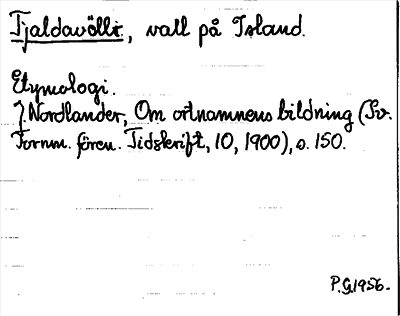 Tjaldavöllr, vall på Island.
Etymologi.
J. Nordlander, Om ortnamnens bildning (Sv.
Fornm. fören. Tidskrift, 10, 1900), s. 150.
P.G. 1956.